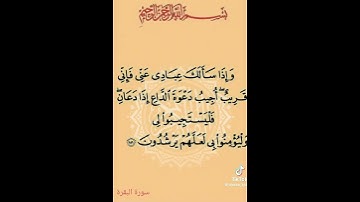 بسم الله الرحمن الرحيم
وَإِذَا سَأَلَكَ عِبَادِى عَنِّى فَإِنِّى
قَرِيبٌ أُجِيبُ دَعْوَةَ الدَّاعِ إِذَا دَعَانِ
فَلْيَسْتَجِيبُوا۟ لِى
وَلْيُؤْمِنُوا۟ بِى لَعَلَّهُمْ يَرْشُدُونَ
سورة البقرة